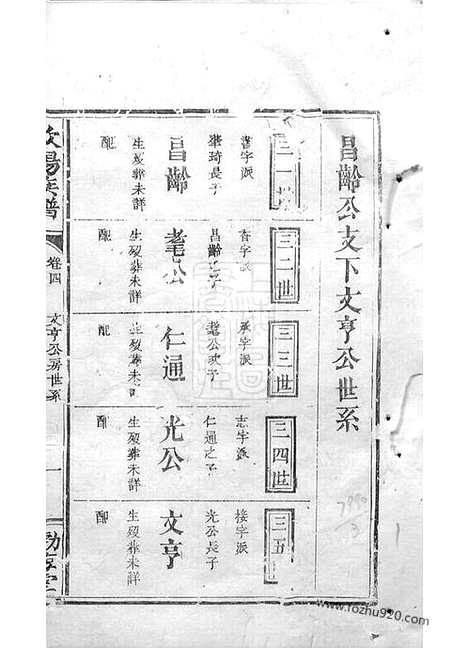 昌齡公支下文亨公世系
三一世
書字派
華琦長子
昌齡
生歿葬未詳
配
三二世
香字派
昌齡之子
耄公
生歿葬未詳
配
三三世
承字派
耄公次子
仁通
生歿葬未詳
配
三四世
志字派
仁通之子
光公
生歿葬未詳
配
三五
接字派
光公長子
文亨
生歿葬未詳
配
陽族譜
卷四
文亨公房世系
一
7890
3
www.fozhu920.com